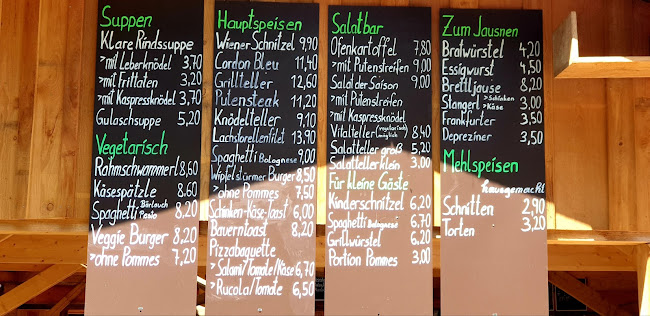 Suppen
Klare Rindssuppe
>mit Leberknödel 3,70
>mit Frittaten 3,20
>mit Kaspressknödel 3,70
Gulaschsuppe 5,20
Vegetarisch
Rahmschwammerl 8,60
Käsespätzle 8,60
Spaghetti Bärlauch Pesto 8,20
Veggie Burger 8,20
>ohne Pommes 7,20
Hauptspeisen
Wiener Schnitzel 9,90
Cordon Bleu 11,40
Grillteller 12,60
Putensteak 11,20
Knödelteller 9,10
Lachsforellenfilet 13,90
Spaghetti Bolognese 9,00
Wipfelstürmer Burger 8,50
>ohne Pommes 7,50
Schinken-Käse-Toast 6,00
Bauerntoast 8,20
Pizzabaguette
>Salami/Tomate/Käse 6,70
>Rucola/Tomate 6,50
Salatbar
Ofenkartoffel 7,80
>mit Putenstreifen 9,00
Salat der Saison 9,00
>mit Putenstreifen
>mit Kaspressknödel
Vitalteller (vegetarisch möglich) 8,40
Salatteller groß 5,20
Salatteller klein 3,00
Für kleine Gäste
Kinderschnitzel 6,20
Spaghetti Bolognese 6,70
Grillwürstel 6,20
Portion Pommes 3,00
Zum Jausnen
Bratwürstel 4,20
Essigwurst 4,50
Brettljause 8,20
Stangerl >Schinken >Käse 3,00
Frankfurter 3,50
Depreziner 3,50
Mehlspeisen
Schnitten 2,90
Torten 3,20